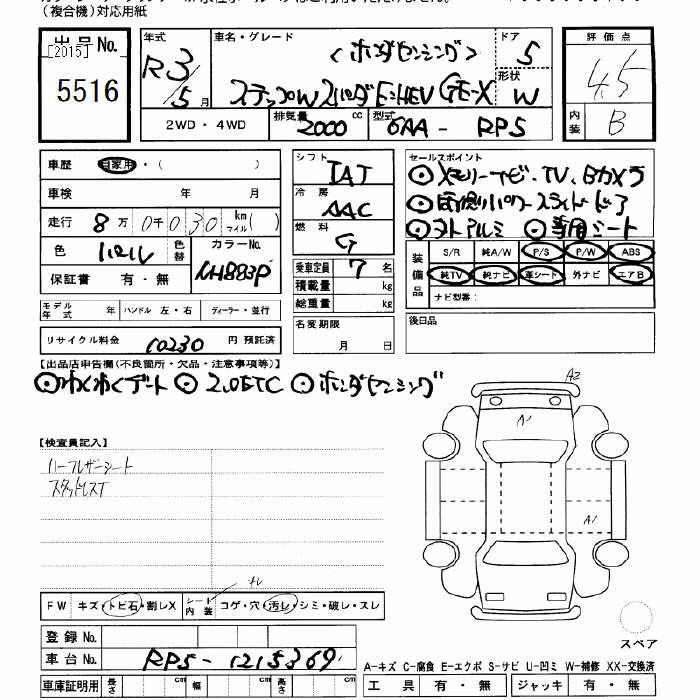 （複合機）対応用紙
出品No.
［2015］
5516
年式
R3/5月
車名・グレード
〈ホンダセンシング〉
ステップW スパーダ E:HEV GE-X
ドア
5
形状
W
2WD・4WD
排気量 2000 cc
型式 6AA - RP5
評価点
4.5
内装
B
車歴 自家用・（ ）
車検 年 月
走行 8万0千030 km マイル( )
色 パール 色替
カラーNo. NH883P
保証書 有・無
シフト
IAT
冷房
AAC
燃料
G
乗車定員 7名
積載量 kg
総重量 kg
セールスポイント
◎メモリーナビ、TV、Bカメラ
◎両側パワースライドドア
◎ヨトアルミ ◎専用シート
装備品
S/R 純A/W P/S P/W ABS
純TV 純ナビ 革シート 外ナビ エアB
ナビ型番：
モデル年式 年 ハンドル 左・右 ディーラー・並行
リサイクル料金 10230 円 預託済
名変期限
月 日
後日品
【出品店申告欄(不良箇所・欠品・注意事項等)】
◎わくわくゲート ◎2.0ETC ◎ホンダセンシング
A2
A1
A1
【検査員記入】
ハーフレザーシート
スタッドレスT
FW キズ・トビ石・割レX
シート内装 コゲ・穴・汚レ・シミ・破レ・スレ
スペア
登録No.
車台No. RP5-1215369
A-キズ C-腐食 E-エクボ S-サビ U-凹ミ W-補修 XX-交換済
車庫証明用 長さ cm 幅 cm 高さ cm
工具 有・無 ジャッキ 有・無